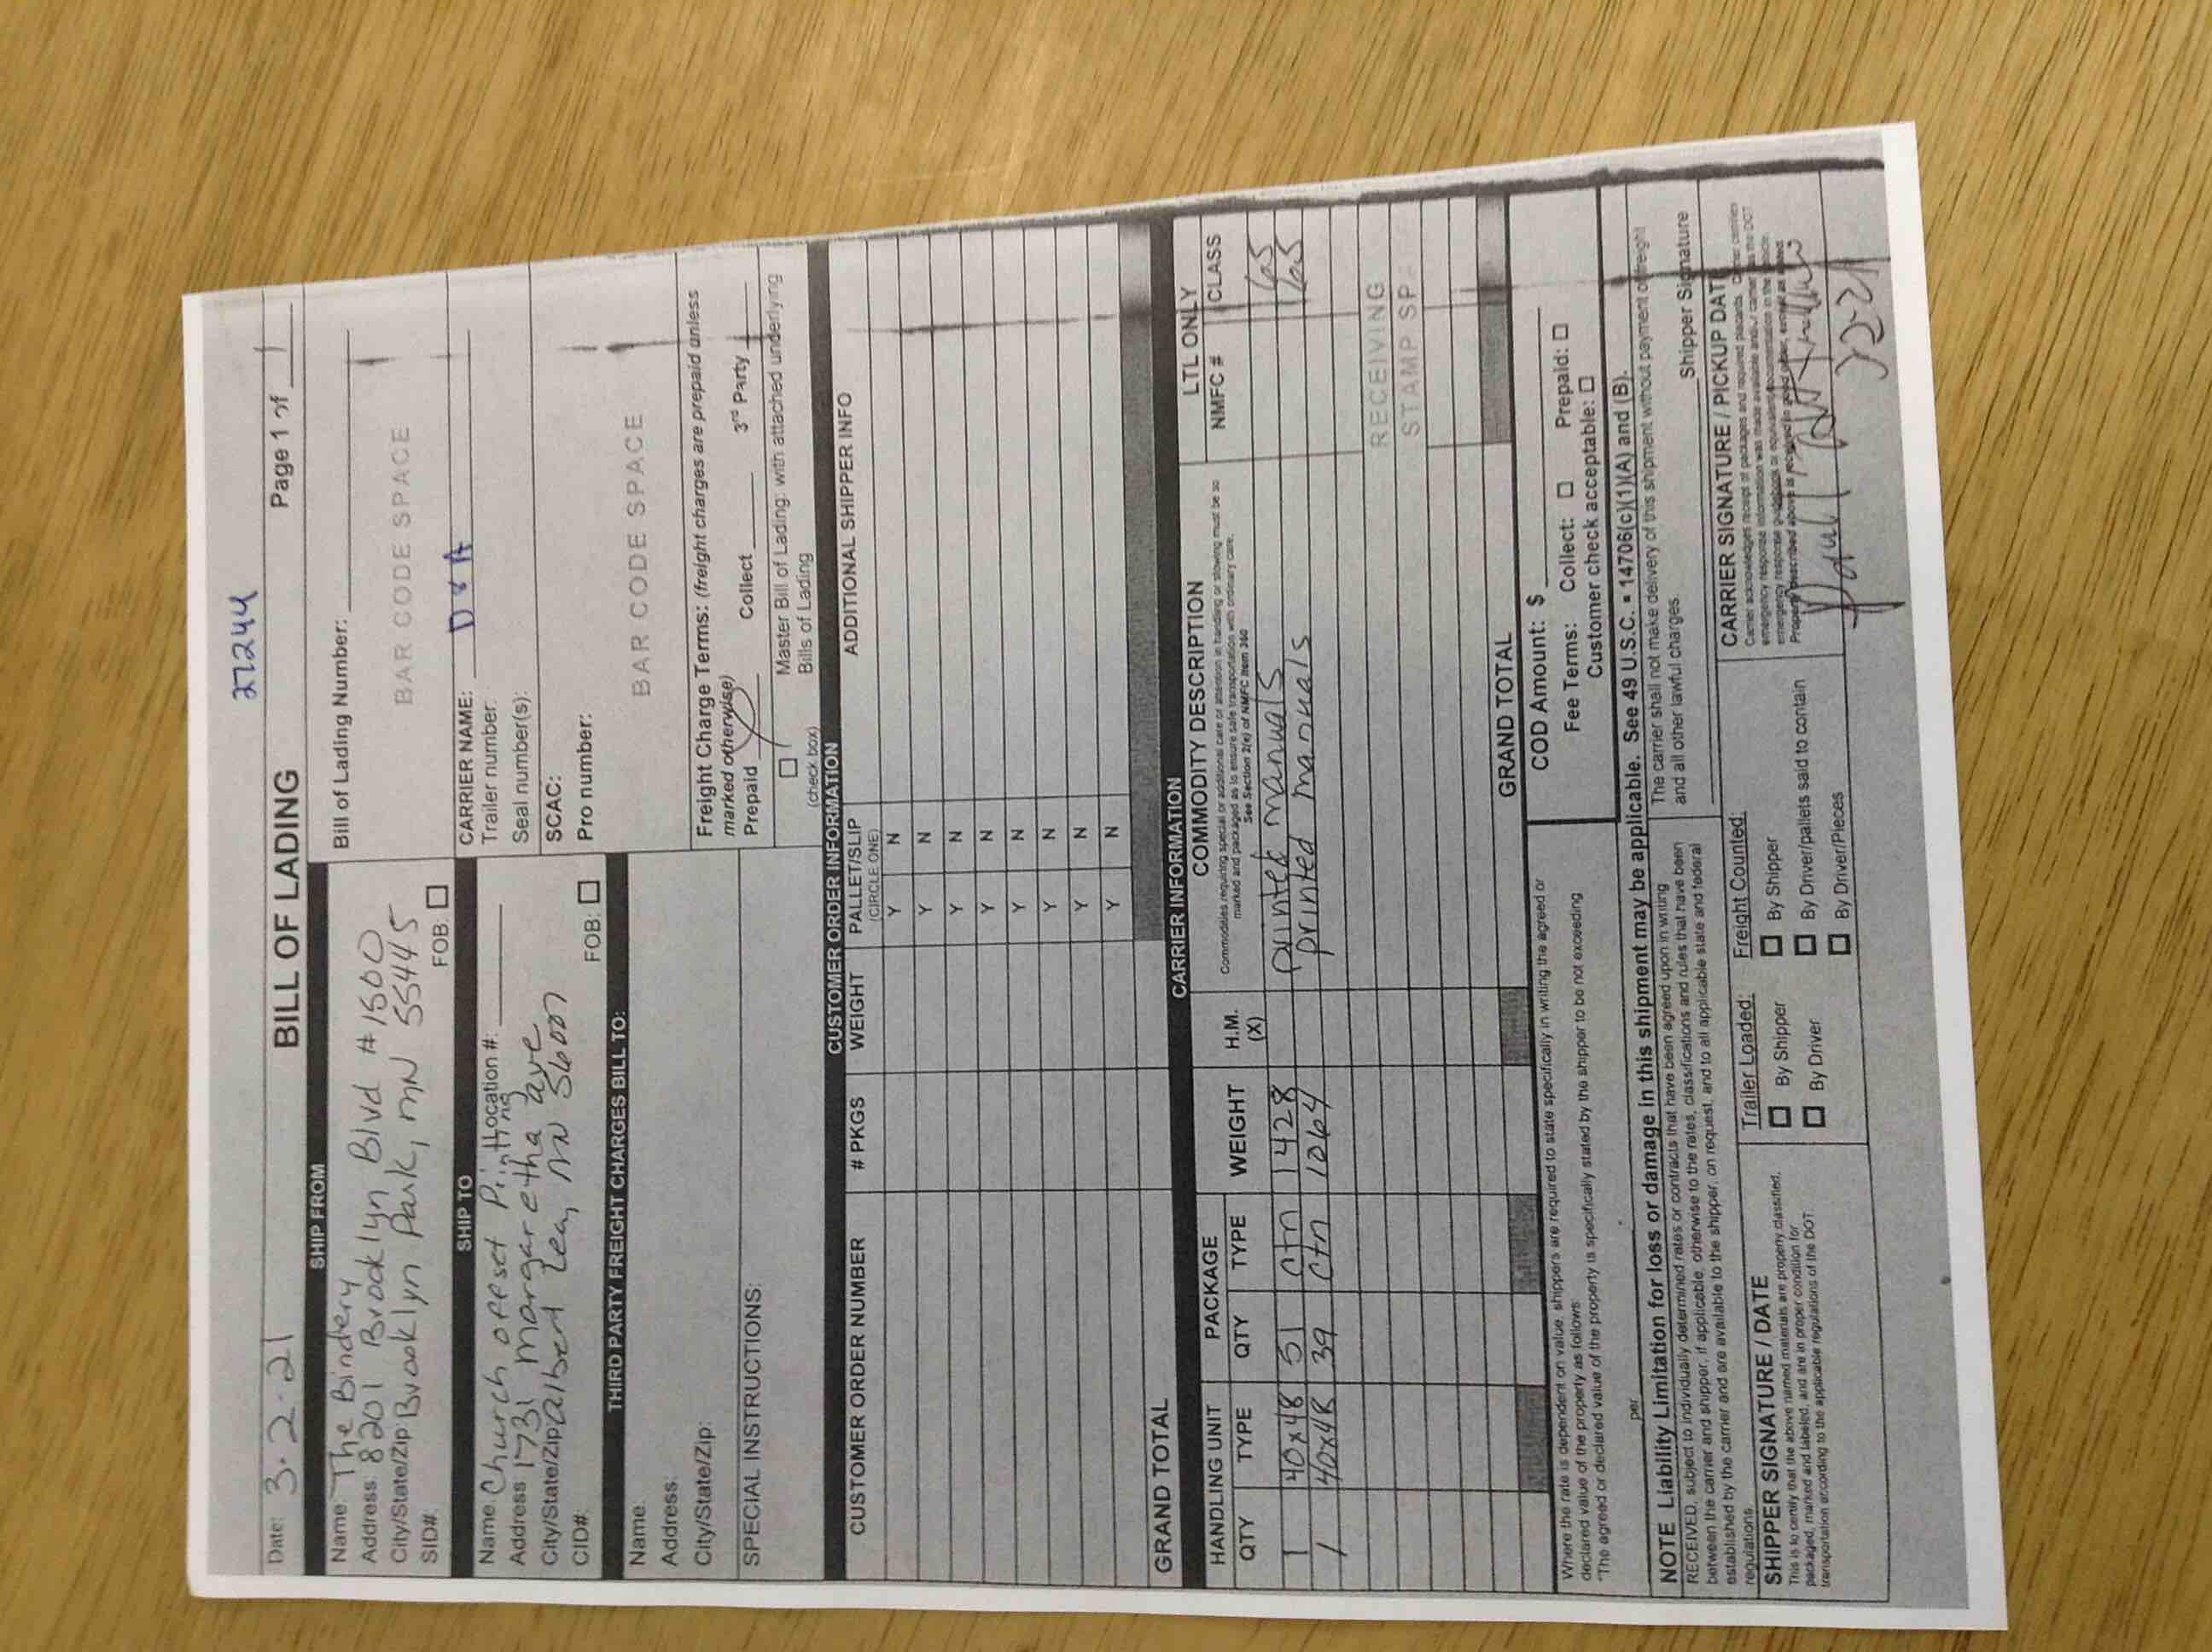 272244
Date: 3-2-21 BILL OF LADING Page 1 of 1
SHIP FROM
Name: The Bindery
Address: 8201 Brooklyn Blvd #1500
City/State/Zip: Brooklyn Park, MN 55445
SID#: FOB: ☐
Bill of Lading Number:
BAR CODE SPACE
SHIP TO
Name: Church offset Printing Location #:
Address 1731 margaretha ave
City/State/Zip albert Lea, MN 56007
CID#: FOB: ☐
CARRIER NAME: D & A
Trailer number:
Seal number(s):
SCAC:
Pro number:
BAR CODE SPACE
THIRD PARTY FREIGHT CHARGES BILL TO:
Name:
Address:
City/State/Zip:
SPECIAL INSTRUCTIONS:
Freight Charge Terms: (freight charges are prepaid unless
marked otherwise)
Prepaid Collect 3rd Party
☐ Master Bill of Lading: with attached underlying
(check box) Bills of Lading
CUSTOMER ORDER INFORMATION
CUSTOMER ORDER NUMBER # PKGS WEIGHT PALLET/SLIP (CIRCLE ONE) ADDITIONAL SHIPPER INFO
Y N
Y N
Y N
Y N
Y N
Y N
Y N
Y N
GRAND TOTAL
CARRIER INFORMATION
HANDLING UNIT PACKAGE COMMODITY DESCRIPTION LTL ONLY
QTY TYPE QTY TYPE WEIGHT H.M. (X) NMFC # CLASS
Commodities requiring special or additional care or attention in handling or stowing must be so
marked and packaged as to ensure safe transportation with ordinary care.
See Section 2(e) of NMFC Item 360
1 40x48 51 ctn 1428 printed manuals
1 40x48 39 ctn 1064 printed manuals
RECEIVING
STAMP SP
GRAND TOTAL
Where the rate is dependent on value, shippers are required to state specifically in writing the agreed or
declared value of the property as follows:
"The agreed or declared value of the property is specifically stated by the shipper to be not exceeding
per
COD Amount: $
Fee Terms: Collect: ☐ Prepaid: ☐
Customer check acceptable: ☐
NOTE Liability Limitation for loss or damage in this shipment may be applicable. See 49 U.S.C. 14706(c)(1)(A) and (B).
RECEIVED, subject to individually determined rates or contracts that have been agreed upon in writing
between the carrier and shipper, if applicable, otherwise to the rates, classifications and rules that have been
established by the carrier and are available to the shipper, on request, and to all applicable state and federal
regulations.
The carrier shall not make delivery of this shipment without payment of freight
and all other lawful charges.
Shipper Signature
SHIPPER SIGNATURE / DATE
This is to certify that the above named materials are properly classified,
packaged, marked and labeled, and are in proper condition for
transportation according to the applicable regulations of the DOT.
Trailer Loaded:
☐ By Shipper
☐ By Driver
Freight Counted:
☐ By Shipper
☐ By Driver/pallets said to contain
☐ By Driver/Pieces
CARRIER SIGNATURE / PICKUP DATE
Carrier acknowledges receipt of packages and required placards. Carrier certifies
emergency response information was made available and/or carrier has the DOT
emergency response guidebook or equivalent documentation in the vehicle.
Property described above is received in good order, except as noted.
Paul
3-2-21